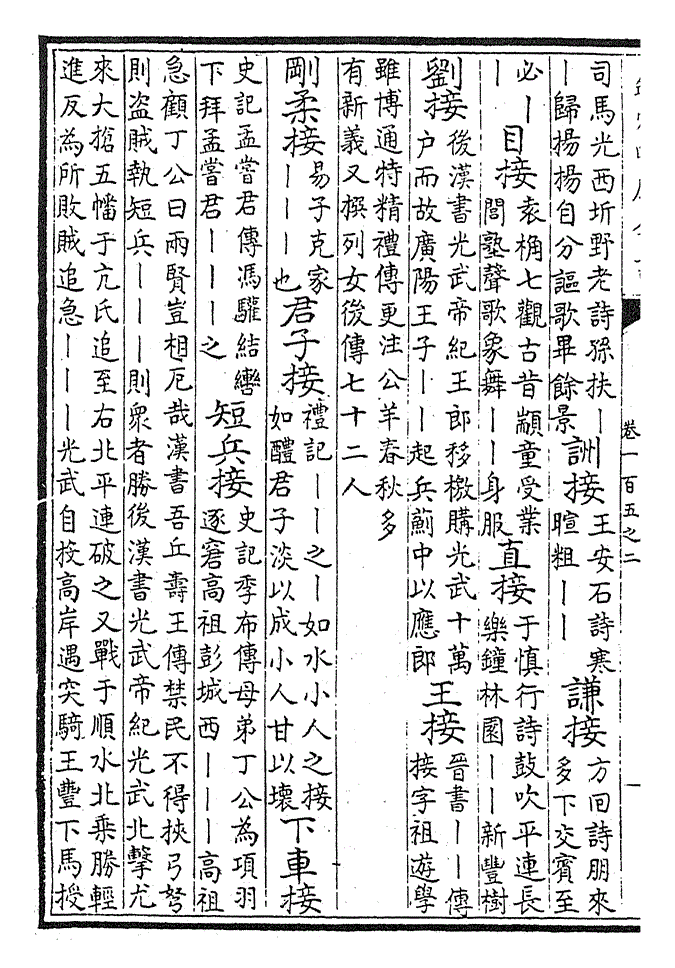 卷一百五之二
一
司馬光西圻野老詩猻扶｜
｜歸揚揚自分謳歌畢餘景
詶接
王安石詩寒
暄粗｜｜
謙接
方回詩朋來
多下交賓至
必｜
｜
目接
袁桷七觀古昔顓童受業
閭塾聲歌象舞｜｜身服
直接
于慎行詩鼓吹平連長
樂鐘林園｜｜新豐樹
劉接
後漢書光武帝紀王郎移檄購光武十萬
户而故廣陽王子｜｜起兵薊中以應郎
王接
晉書｜｜傳
接字祖遊學
雖博通特精禮傳更注公羊春秋多
有新義又撰列女後傳七十二人
剛柔接
易子克家
｜｜｜也
君子接
禮記｜｜之｜如水小人之接
如醴君子淡以成小人甘以壞
下車接
史記孟嘗君傳馮驩結轡
下拜孟嘗君｜｜｜之
短兵接
史記季布傳母弟丁公為項羽
逐窘高祖彭城西｜｜｜高祖
急顧丁公曰兩賢豈相厄哉漢書吾丘壽王傳禁民不得挾弓弩
則盜賊執短兵｜｜｜則衆者勝後漢書光武帝紀光武北擊尤
來大搶五幡于亢氏追至右北平連破之又戰于順水北乘勝輕
進反為所敗賊追急｜｜｜光武自投高岸遇突騎王豐下馬授